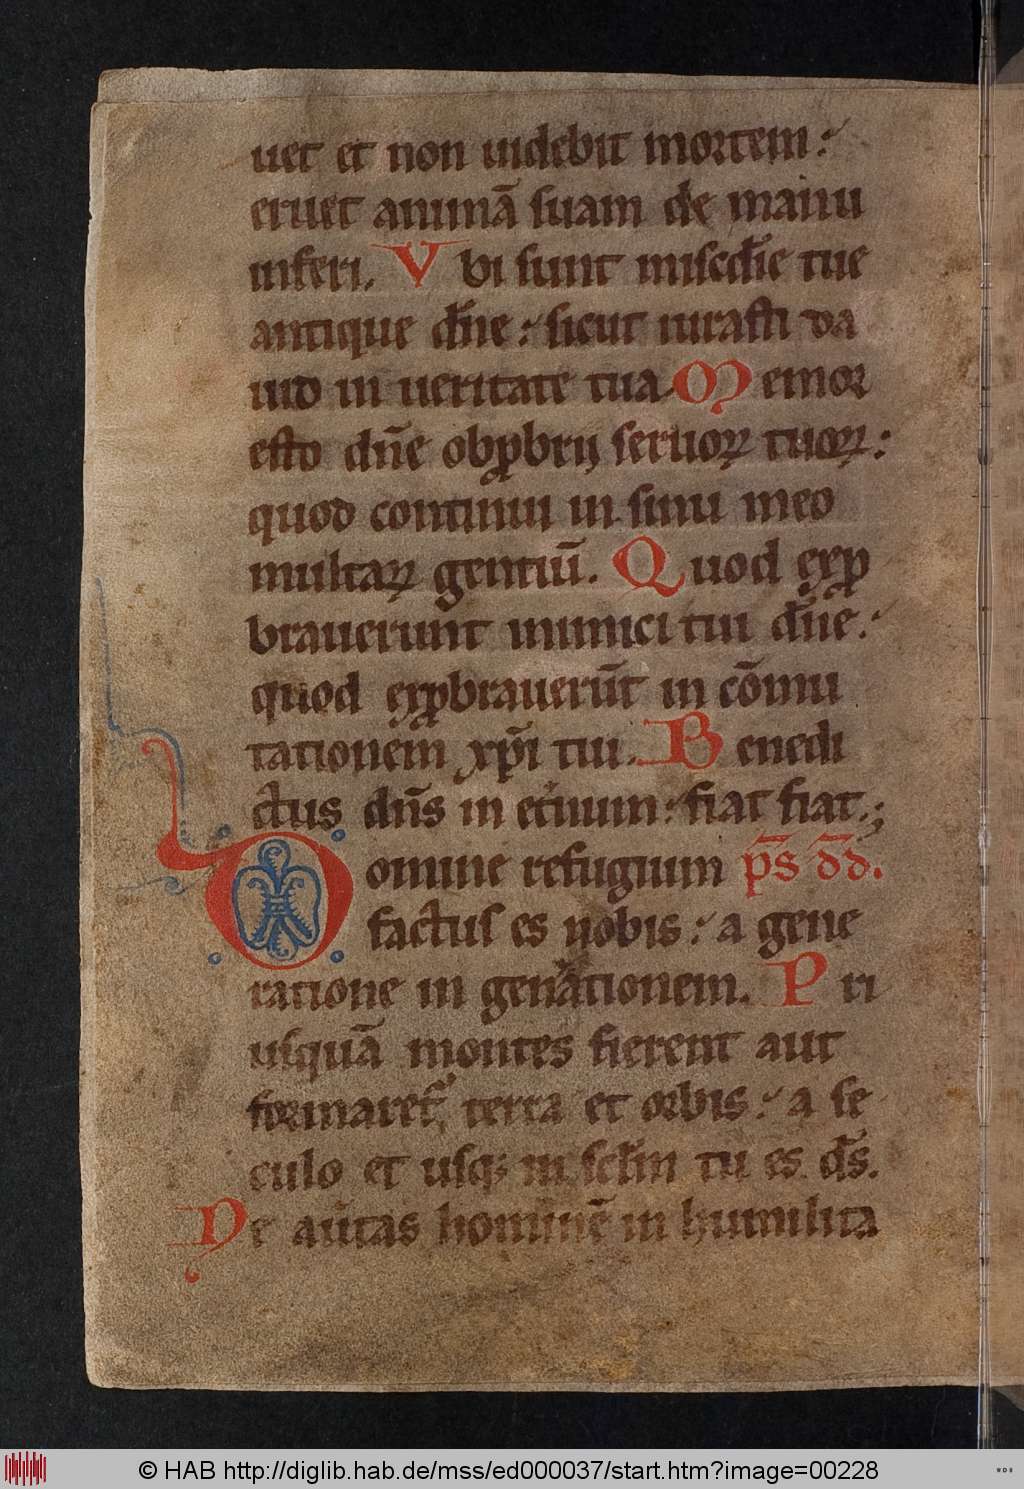 uet et non uidebit mortem:
eruet animā suam de manu
inferi. Vbi sunt misc̄die tue
antique dn̄e: sicut iurasti da
uid in ueritate tua. Memor
esto dn̄e obꝓbrij seruoꝝ tuoꝝ:
quod continui in sinu meo
multaꝝ gentiū. Quod exꝓ
brauerunt inimici tui dn̄e:
quod exꝓbrauerūt in cōmu
tationem xp̄i tui. Benedi
ctus dn̄s in et̄num: fiat fiat.;
Domine refugium p̄s dd̄.
factus es nobis: a gene
ratione in gen̄ationem. Pri
usquā montes fierent aut
formaret᷑ terra et orbis: a se
culo et usqꝫ in scl̄m tu es ds̄.
Ne au̓tas hominē in humilita
© HAB http://diglib.hab.de/mss/ed000037/start.htm?image=00228